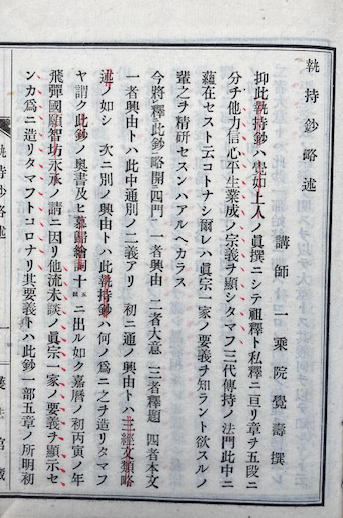 執持鈔略述
講師一乘院覺壽撰
抑此執持鈔ハ覺如上人ノ眞撰ニシテ祖釋ト私釋ニ亘リ章ヲ五段ニ
分チ他力信心平生業成ノ宗義ヲ顯シタマフ三代傳持ノ法門此中ニ
蘊在セスト云コトナシ爾レハ眞宗一家ノ要義ヲ知ラント欲スルノ
輩之ヲ精研セスンハアルヘカラス
今將釋此鈔略開四門 一者興由 二者大意 三者釋題 四者本文
一者興由トハ此中通別ノ二義アリ 初ニ通ノ興由トハ三經文類略
述ノ如シ 次ニ別ノ興由トハ此執持鈔ハ何ノ爲ニ之ヲ造リタマフ
ヤ謂ク此鈔ノ奥書及ヒ慕歸繪詞十ニ出ル如ク嘉暦ノ初丙寅ノ年
飛彈國願智坊永承ノ請ニ因リ他流未談ノ眞宗一家ノ要義ヲ顯示セ
ンカ爲ニ造リタマフトコロナリ其要義トハ此鈔一部五章ノ所明初
執持鈔略述